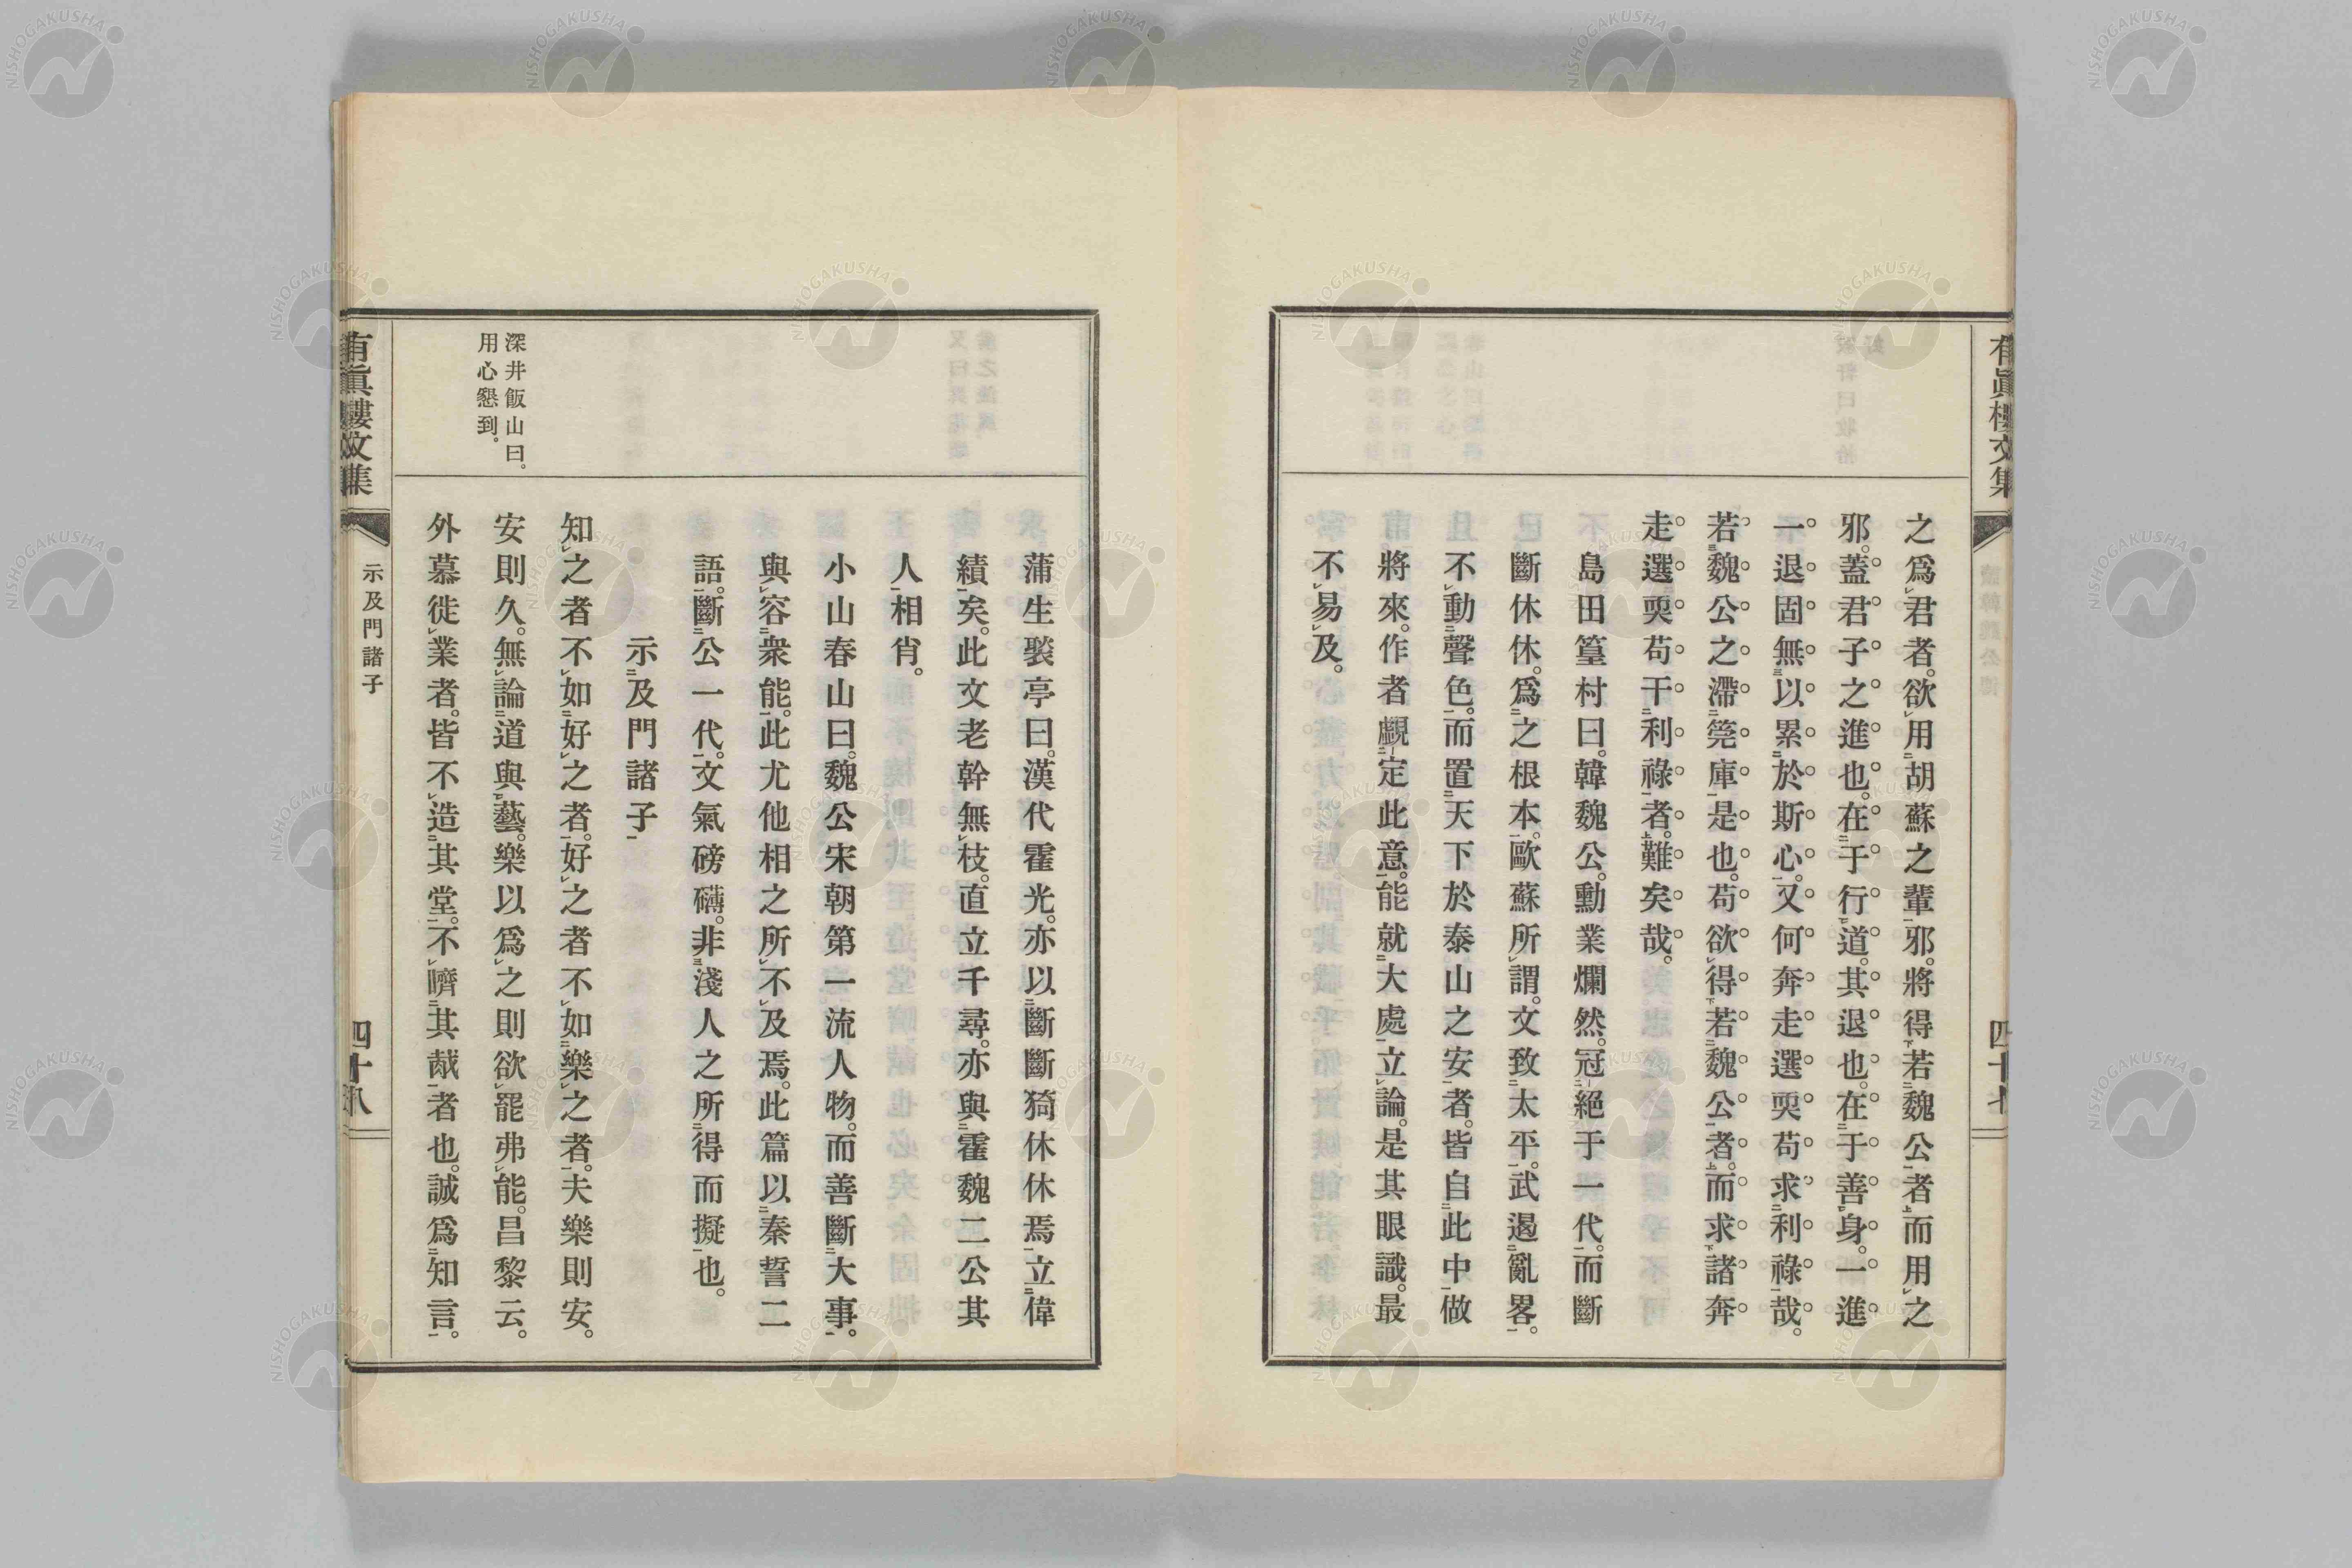 有眞樓文集
四十七
之爲君者。欲用胡蘇之輩邪。將得若魏公者而用之
邪。蓋君子之進也。在于行道。其退也。在于善身。一進
一退。固無以累於斯心。又何奔走選耎苟求利祿哉。
若魏公之滯筦庫是也。苟欲得若魏公者。而求諸奔
走選耎苟干利祿者。難矣哉。
島田篁村曰。韓魏公。勳業爛然。冠絕于一代。而斷
斷休休。爲之根本。歐蘇所謂。文致太平。武遏亂畧。
不動聲色。而置天下於泰山之安者。皆自此中做
將來。作者覷定此意。能就大處立論。是其眼識。最
不易及。
蒲生褧亭曰。漢代霍光。亦以斷斷猗休休焉立偉
績矣。此文老幹無枝。直立千尋。亦與霍魏二公其
人相肖。
小山春山曰。魏公宋朝第一流人物。而善斷大事。
與容衆能。此尤他相之所不及焉。此篇以秦誓二
語。斷公一代。文氣磅礴。非淺人之所得而擬也。
示及門諸子
深井飯山曰。
用心懇到。
知之者不如好之者。好之者不如樂之者。夫樂則安。
安則久。無論道與藝。樂以爲之則欲罷弗能。昌黎云。
外慕徙業者。皆不造其堂。不嚌其胾者也。誠爲知言。
有眞樓文集
示及門諸子
四十八